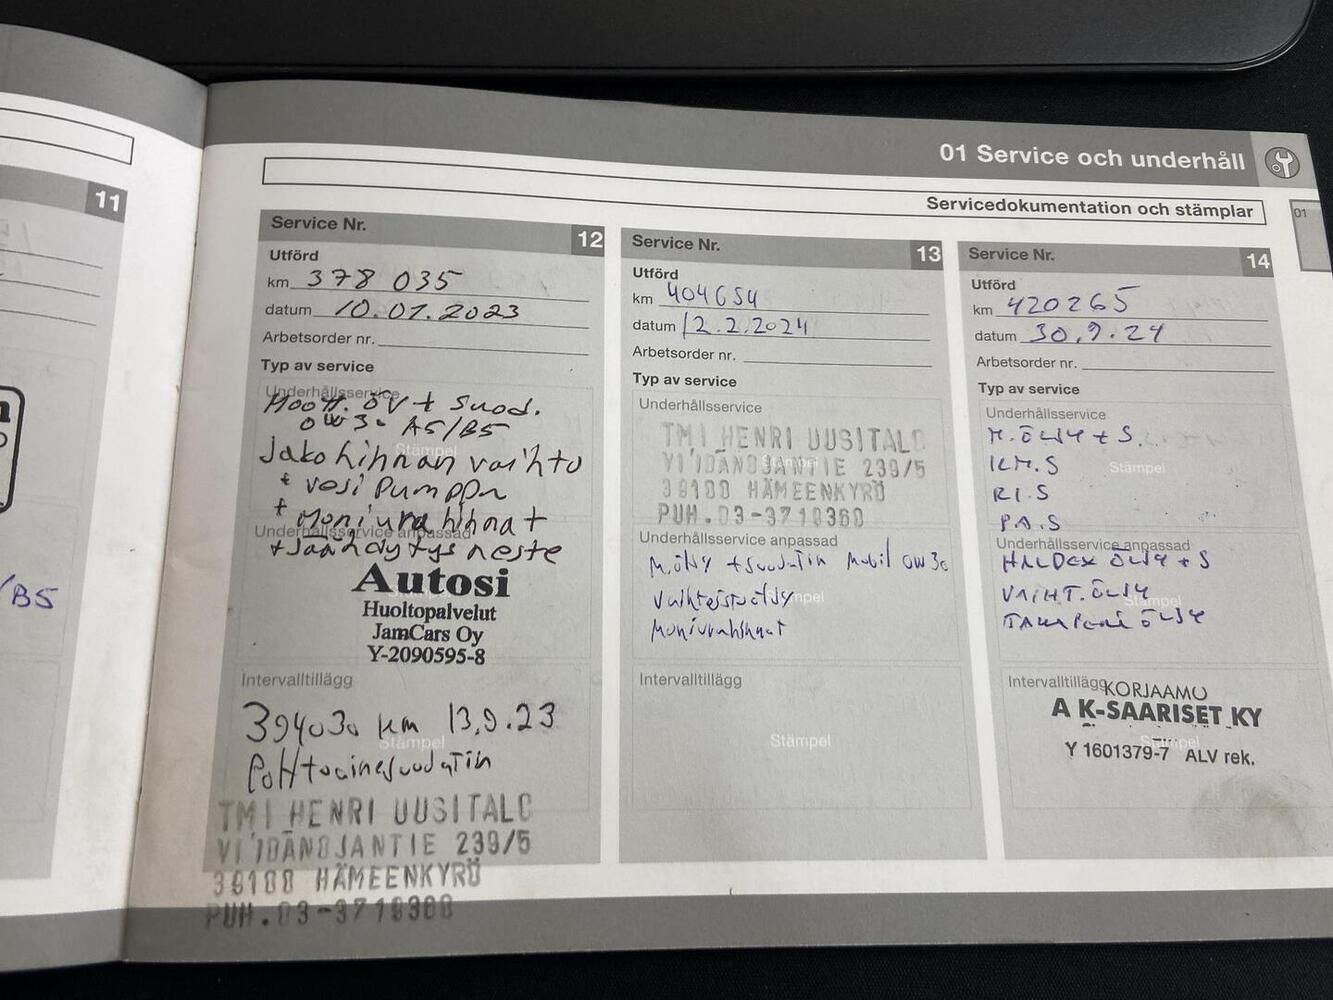 01 Service och underhåll
Servicedokumentation och stämplar
01
11
/B5
Service Nr. 12
Utförd
km 378 035
datum 10.01.2023
Arbetsorder nr.
Typ av service
Underhållsservice
Moott. ÖV + Suod.
0W30 A5/B5
Stämpel
Jakohihnan vaihto
+ vesi Pumppu
+ Moniura hihnat
Underhållsservice anpassad
+ Jäähdytys neste
Autosi
Huoltopalvelut
JamCars Oy
Y-2090595-8
Intervalltillägg
394030 km 13.9.23
Stämpel
Polttoainesuodatin
TMI HENRI UUSITALO
239/5
HÄMEENKYRÖ
PUH.03-3718360
Service Nr. 13
Utförd
km 404654
datum 12.2.2024
Arbetsorder nr.
Typ av service
Underhållsservice
TMI HENRI UUSITALO
239/5
HÄMEENKYRÖ
PUH.03-3718360
Underhållsservice anpassad
M.öljy + suodatin Mobil 0W30
Vaihteistoöljy
Moniurahihnat
Intervalltillägg
Stämpel
Service Nr. 14
Utförd
km 420265
datum 30.9.24
Arbetsorder nr.
Typ av service
Underhållsservice
M.ÖLJY + S.
Stämpel
KM.S
RI.S
PA.S
Underhållsservice anpassad
HALDEX ÖLJY + S
VAIHT.ÖLJY
ÖLJY
Intervalltillägg
KORJAAMO
A K-SAARISET KY
Y 1601379-7 ALV rek.